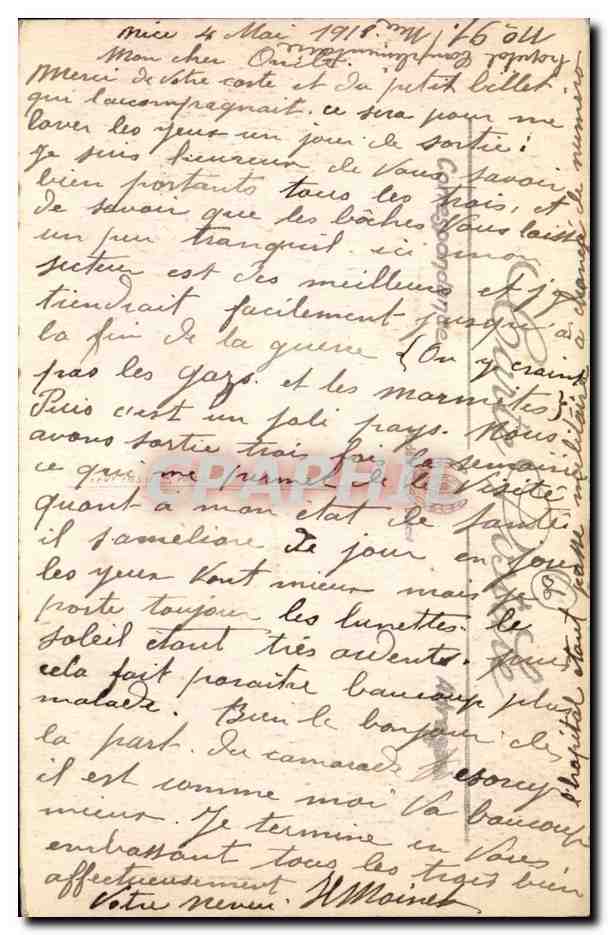 Nice 4 Mai 1918.
Mon cher
Merci de votre carte et du petit billet
qui l'accompagnait. ce sera pour me
laver les yeux un jour de sortie!
Je suis heureux de vous savoir
bien portants tous les trois, et
de savoir que les bôches vous laisse
un peu tranquil. ici mon
secteur est des meilleurs et j'y
tiendrait facilement jusqu'à
la fin de la guerre (On y craint
pas les gazs. et les marmites)
Puis c'est un joli pays. Nous
avons sortie trois foi la semaine
ce qui me permet de le visité
quant-à mon etat de santé
il s'ameliore de jour en jour
les yeux vont mieux mais je
porte toujour les lunettes. le
soleil étant très ardent.
cela fait paraitre beaucoup plus
malade. Bien le bonjour de
la part. du camarade
il est comme moi va beaucoup
mieux. Je termine en vous
embrassant tous les trois bien
affectueusement
Votre neveu. H Moinet
Hopital
No 97.
l'hopital étant passé militaire a changé de numero
Carte Postale
Correspondance
Adresse
CPAPHIL